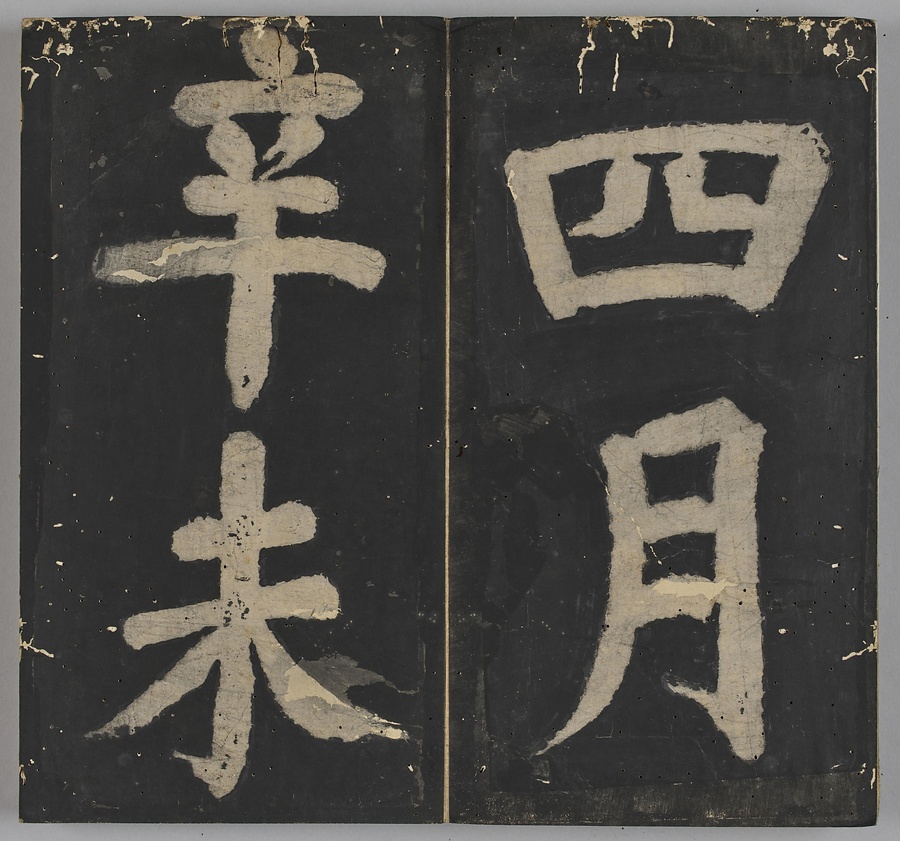 四月
辛未